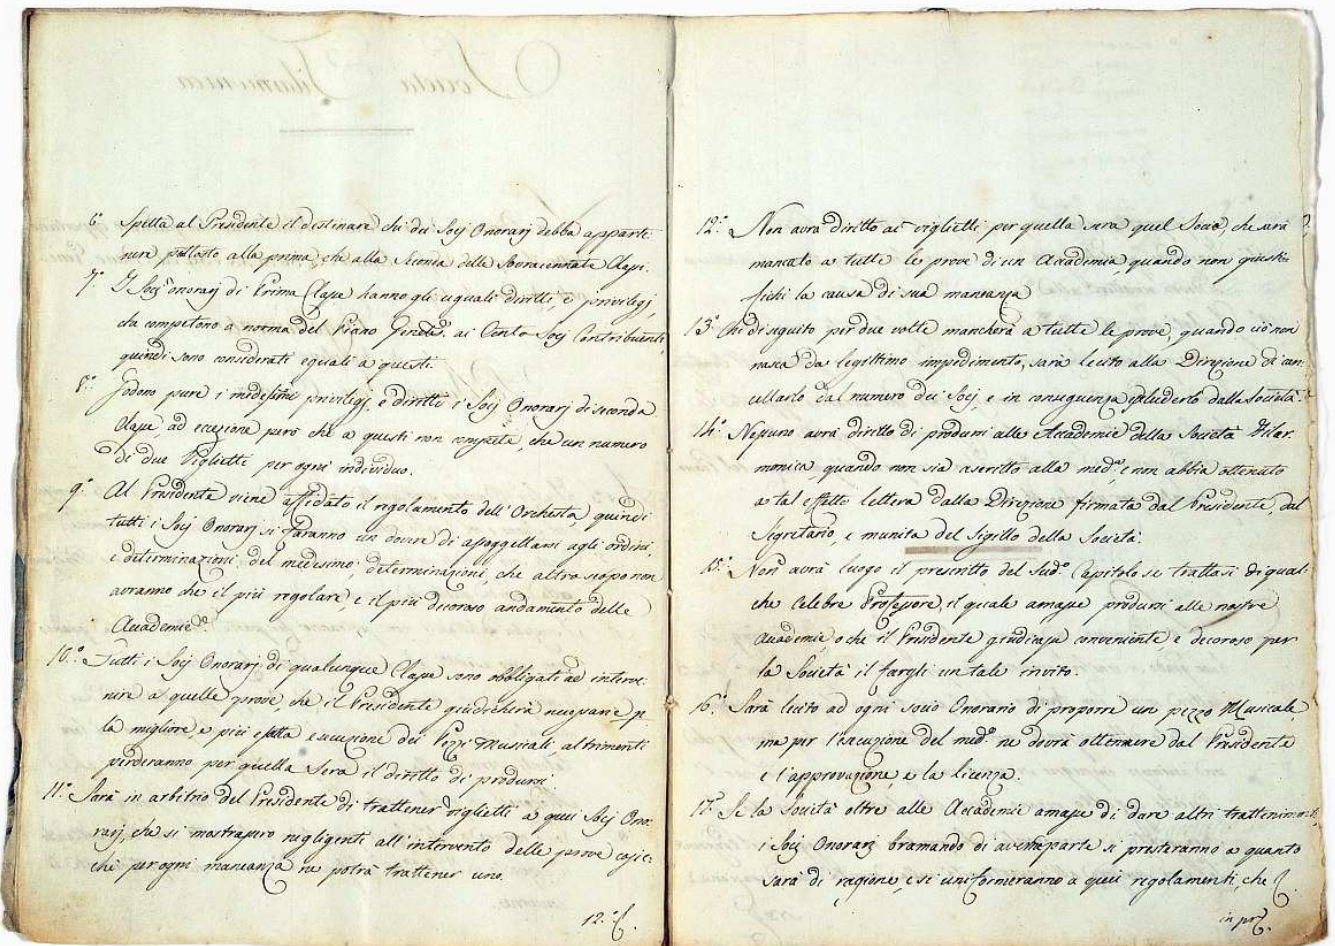 6.° Spetta al Presidente il destinare chi dei Socj Onorarj debba apparte-
nere piuttosto alla prima, che alla Seconda delle Sovracennate Classi.
7.° I Socj onorarj di Prima Classe hanno gli uguali diritti, e privilegj,
che competono a norma del Piano Gener.e ai Cento Socj Contribuenti,
quindi sono considerati eguali a questi.
8.° Godono pure i medesimi privilegj, e diritti i Socj Onorarj di seconda
Classe, ad eccezione però che a questi non compete, che un numero
di due Viglietti per ogni individuo.
9.° Al Presidente viene affidato il regolamento dell'Orchestra, quindi
tutti i Socj Onorarj si faranno un dovere di assoggettarsi agli ordini,
e determinazioni del medesimo; determinazioni, che altro scopo non
avranno che il più regolare, e il più decoroso andamento delle
Accademie.
10.° Tutti i Socj Onorarj di qualunque Classe sono obbligati ad interve-
nire a quelle prove, che il Presidente giudicherà necessarie p.
la migliore, e più esatta esecuzione dei Pezzi Musicali, altrimenti
perderanno per quella Sera il diritto di prodursi
11.° Sarà in arbitrio del Presidente di trattener viglietti a quei Socj Ono-
rarj, che si mostrassero negligenti all'intervento delle prove cosic-
chè per ogni mancanza ne potrà trattener uno.
12.°
12.° Non avrà diritto ai viglietti per quella sera quel Socio, che sarà
mancato a tutte le prove di un Accademia, quando non giusti-
fichi la causa di sua mancanza
13.° Chi di seguito per due volte mancherà a tutte le prove, quando ciò non
nasca da legittimo impedimento, sarà lecito alla Direzione di can-
cellarlo dal numero dei Socj, e in conseguenza escluderlo dalla Società.
14.° Nessuno avrà diritto di prodursi alle Accademie della Società Filar-
monica, quando non sia ascritto alla med.a, e non abbia ottenuto
a tal effetto lettera dalla Direzione firmata dal Presidente, dal
Segretario, e munita del Sigillo della Società.
15.° Non avrà luogo il prescritto del Sud.o Capitolo se trattasi di qual-
che celebre Professore, il quale amasse prodursi alle nostre
Accademie, o che il Presidente giudicasse conveniente, e decoroso per
la Società il fargli un tale invito.
16.° Sarà lecito ad ogni socio Onorario di proporre un pezzo Musicale,
ma per l'esecuzione del med.o ne dovrà ottenere dal Presidente
e l'approvazione, e la licenza.
17.° Se la Società oltre alle Accademie amasse di dare altri trattenimenti,
i Socj Onorarj bramando di avervi parte si presteranno a quanto
sarà di ragione, e si uniformeranno a quei regolamenti, che